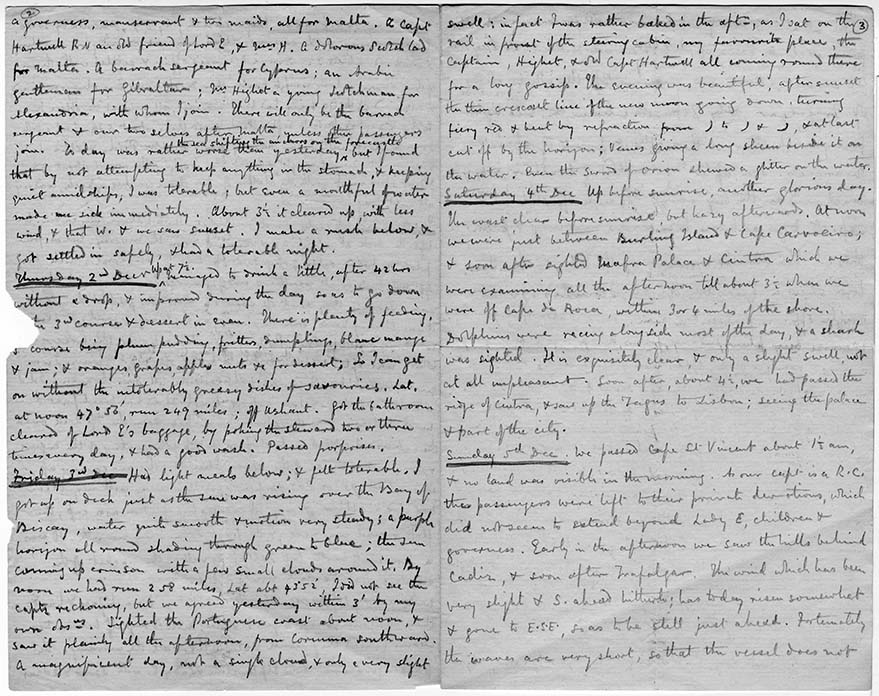 2
a governess, manservant & two maids, all for Malta. A Capt
Hartwell R.N an old friend of Lord E, & Miss H. A dolorous Scotch lad
for Malta. A barrack sergeant for Cyprus; an Arabic
gentleman for Gibraltar; Mr Highet a young Scotchman for
Alexandria, with whom I join. There will only be the barrack
sergeant & our two selves after Malta, unless other passengers
join. To day was rather worse than yesterday, but I found
the sea shifting the anchors on the forecastle
that by not attempting to keep anything in the stomach, & keeping
quiet amidships, I was tolerable; but even a mouthful of water
made me sick immediately. About 3½ it cleared up, with less
wind, & that W. & we saw sunset. I made a rush below, &
got settled in safely, & had a tolerable night.
Thursday 2nd Decr Up at 7½. managed to drink a little, after 42 hrs
without a drop, & improved during the day so as to go down
3rd course & dessert in even. There is plenty of feeding,
course being plum pudding, fritters, dumplings, blanc mange
& jam; & oranges, grapes apples nuts &c for dessert; So I can get
on without the intolerably greasy dishes of savouries. Lat,
at noon 47° 56', run 249 miles; off Ushant. Got the bathroom
cleared of Lord E's baggage, by poking the steward two or three
times every day, & had a good wash. Passed porpoises.
Friday 3rd Dec Had light meals below; & felt tolerable. I
got up on deck just as the sun was rising over the Bay of
Biscay, water quite smooth & motion very steady; a purple
horizon all round shading through green to blue; the sun
coming up crimson with a few small clouds around it. By
noon we had run 258 miles, Lat abt 43°52' I did not see the
capts reckoning, but we agreed yesterday within 3' by my
own obsns. Sighted the Portuguese coast about noon, &
saw it plainly all the afternoon, from Corunna southward.
A magnificent day, not a single cloud, & only a very slight
3
swell; in fact I was rather baked in the aftn, as I sat on the
rail in front of the steering cabin, my favourite place, the
Captain, Highet, & old Capt Hartwell all coming round there
for a long gossip. The evening was beautiful, after sunset
the thin crescent line of the new moon going down, turning
fiery red & bent by refraction from & at last
cut off by the horizon; Venus giving a long sheen beside it on
the water. Even the Sword of Orion shewed a glitter on the water.
Saturday 4th Dec Up before sunrise, another glorious day.
The coast clear before sunrise but hazy afterwards. At noon
we were just between Burling Island & Cape Carvoeiro;
& soon after sighted Mafra Palace & Cintra which we
were examining all the afternoon till about 3½ when we
were off Cape da Roca, within 3 or 4 miles of the shore.
Dolphins were racing alongside most of the day, & a shark
was sighted. It is exquisitely clear, & only a slight swell, not
at all unpleasant. Soon after, about 4½, we had passed the
ridge of Cintra, & saw up the Tagus to Lisbon; seeing the palace
& part of the city.
Sunday 5th Dec. We passed Cape St Vincent about 1½ am,
& no land was visible in the morning. As our capt is a R.C.
the passengers were left to their private devotions, which
did not seem to extend beyond Lady E, children &
governess. Early in the afternoon we saw the hills behind
Cadiz, & soon after Trafalgar. The wind which has been
very slight & S. ahead hitherto; has today risen somewhat
& gone to E.S.E, so as to be still just ahead. Fortunately
the waves are very short, so that the vessel does not